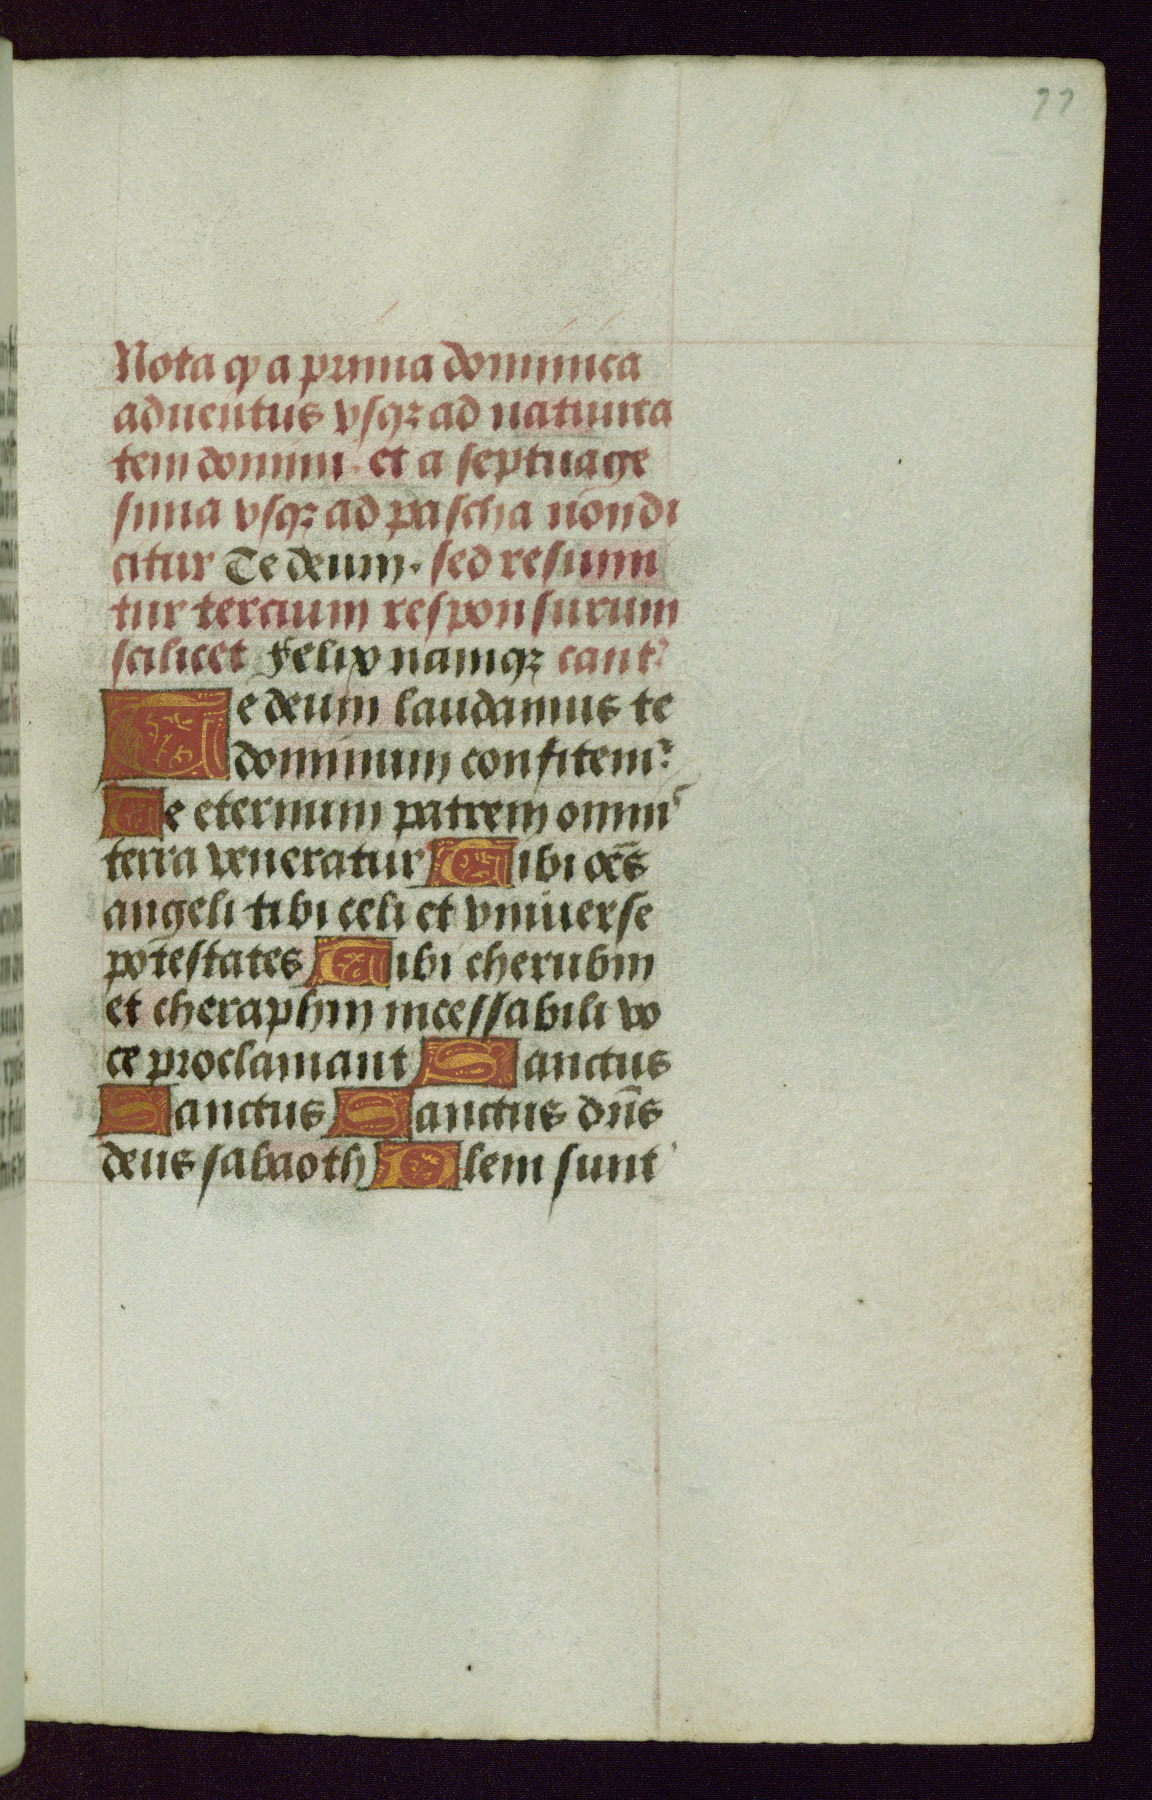 22
Nota ꝙ a prima dominica
aduentus vsqꝫ ad natiuita
tem domini. et a septuage
sima vsqꝫ ad pascha non di
citur Te deum. sed resumi
tur tercium responsurum
scilicet Felix namqꝫ cantꝰ
Te deum laudamus te
dominum confitemꝰ
Te eternum patrem omnis
terra veneratur Tibi oēs
angeli tibi celi et vniuerse
potestates Tibi cherubin
et cheraphin incessabili vo
ce proclamant Sanctus
Sanctus Sanctus dn̄s
deus sabaoth Plem sunt